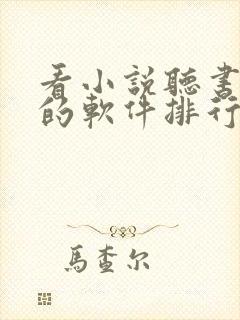 看小説聽書
的軟件排行
馬查尔